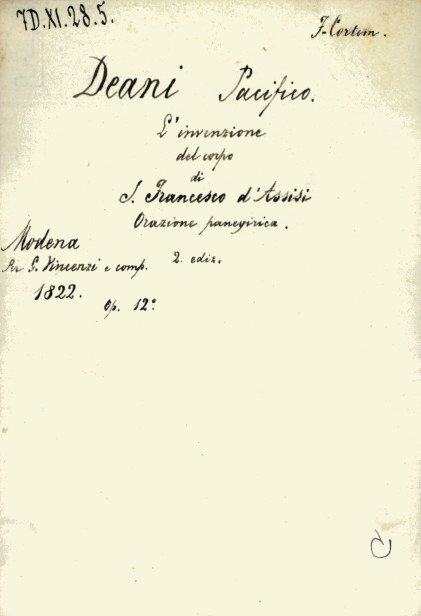 7D.XI.28.5.
F-Cortem.
Deani Pacifico.
L'invenzione
del corpo
di
S. Francesco d'Assisi
Orazione panegirica.
Modena
Per G. Vincenzi e comp. 2. ediz.
1822.
Op. 12°